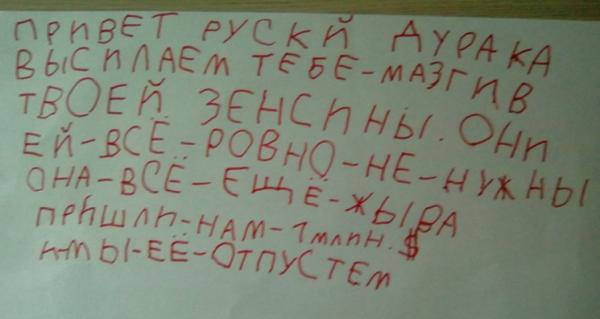 ПРИВЕТ РУСКЙ ДУРАКА
ВЫСИЛАЕМ ТЕБЕ-МАЗГИВ
ТВОЕЙ ЗЕНСИНЫ. ОНИ
ЕЙ-ВСЁ-РОВНО-НЕ-НУЖНЫ
ОНА-ВСЁ-ЕЩЁ-ЖЫРА
ПРИШЛИ-НАМ-1 МЛИН.$
И-МЫ-ЕЁ-ОТПУСТЕМ